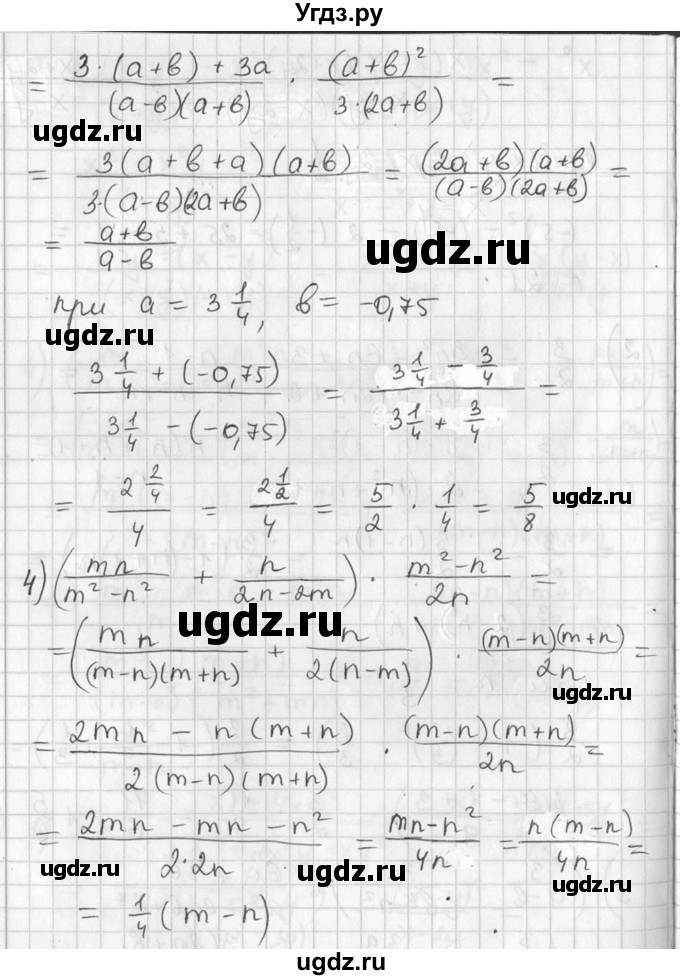 Угдз.ру
= (3·(a+в) + 3a)/((a-в)(a+в)) · (a+в)²/(3·(2a+в)) =
ugdz.ru
= (3(a+в+a)(a+в))/(3·(a-в)(2a+в)) = ((2a+в)(a+в))/((a-в)(2a+в)) =
= (a+в)/(a-в)
ugdz.ru
при a = 3 1/4, в = -0,75
ugdz.ru
(3 1/4 + (-0,75))/(3 1/4 - (-0,75)) = (3 1/4 - 3/4)/(3 1/4 + 3/4) =
= (2 2/4)/4 = (2 1/2)/4 = 5/2 · 1/4 = 5/8
ugdz.ru
4) (mn/(m²-n²) + n/(2n-2m)) · (m²-n²)/2n =
ugdz.ru
= (mn/((m-n)(m+n)) + n/(2(n-m))) · ((m-n)(m+n))/2n =
ugdz.ru
= (2mn - n(m+n))/(2(m-n)(m+n)) · ((m-n)(m+n))/2n =
= (2mn - mn - n²)/(2·2n) = (mn-n²)/4n = (n(m-n))/4n =
ugdz.ru ugdz.ru ugdz.ru
= 1/4 (m-n)
ugdz.ru ugdz.ru